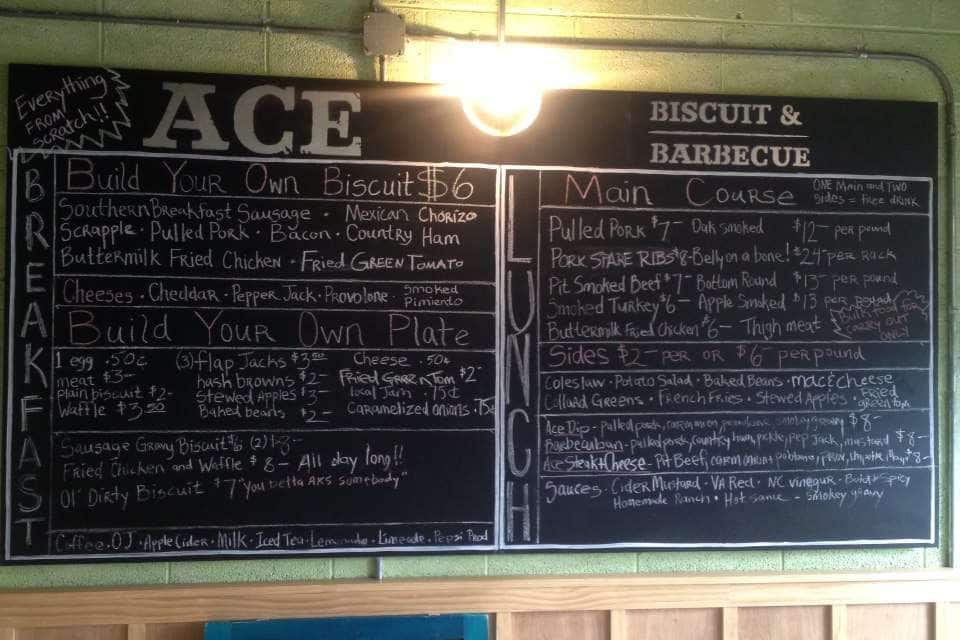 Everything
FROM
SCRATCH!!
ACE
BISCUIT &
BARBECUE
BREAKFAST
Build Your Own Biscuit $6
Southern Breakfast Sausage · Mexican Chorizo
Scrapple · Pulled Pork · Bacon · Country Ham
Buttermilk Fried Chicken · Fried Green Tomato
Cheeses · Cheddar · Pepper Jack · Provolone · Smoked
Pimiento
Build Your Own Plate
1 egg .50¢ (3) flap Jacks $3.50 Cheese .50¢
meat $3– hash browns $2– Fried Green Tom $2–
plain biscuit $2– Stewed Apples $3– local Jam .75¢
Waffle $3.50 Baked beans $2– Caramelized onions .75¢
Sausage Gravy Biscuit $6 (2) $8–
Fried Chicken and Waffle $8– All day long!!
Ol' Dirty Biscuit $7 "You betta AKS Somebody"
Coffee · OJ · Apple Cider · Milk · Iced Tea · Lemonade · Limeade · Pepsi Prod
LUNCH
Main Course ONE Main and TWO
Sides = free drink
Pulled Pork $7– Oak smoked $12– per pound
Pork Spare Ribs $8– Belly on a bone! $24– per rack
Pit Smoked Beef $7– Bottom Round $13– per pound
Smoked Turkey $6– Apple Smoked $13 per pound
Buttermilk Fried Chicken $6– Thigh meat
Bulk food for
CARRY OUT
ONLY!
Sides $2– per or $6– per pound
Coleslaw · Potato Salad · Baked Beans · mac & cheese
Collard Greens · French Fries · Stewed Apples · Fried
green tom
Ace Dip - pulled pork, smokey gravy $8–
pulled pork, country ham, pickle, pep Jack, mustard $8–
Ace Steak & Cheese - Pit Beef, $8–
Sauces · Cider Mustard · VA Red · NC vinegar · Spicy
Homemade Ranch · Hot sauce - Smokey gravy